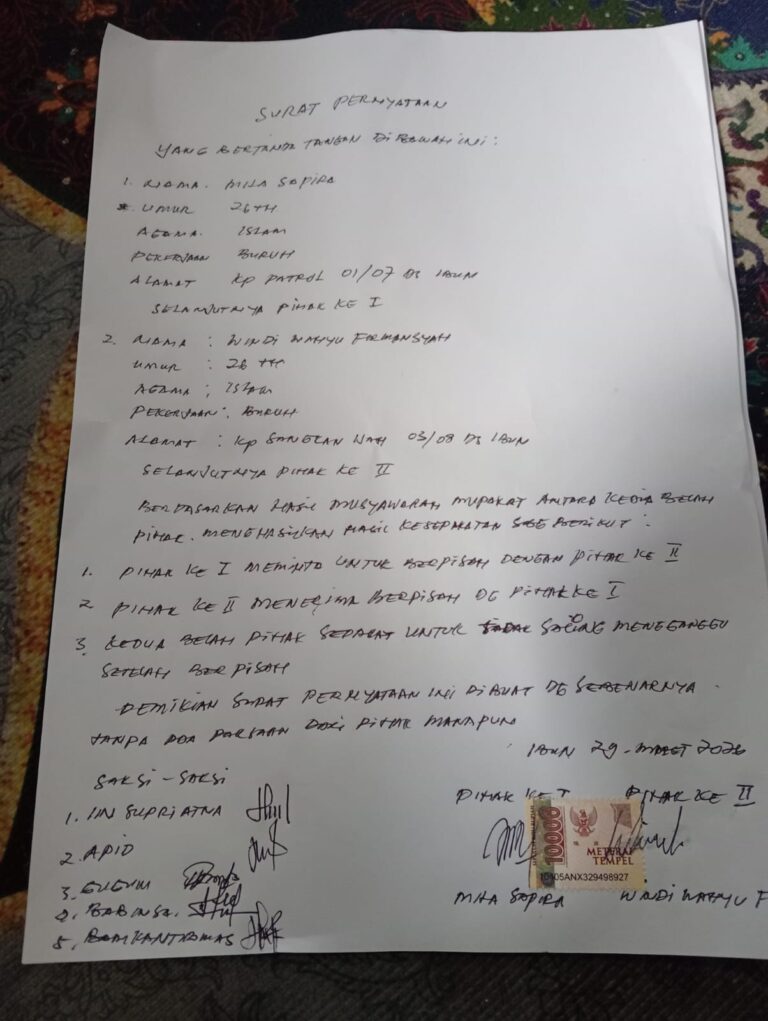 SURAT PERNYATAAN
YANG BERTANDA TANGAN DI BAWAH INI :
1. NAMA. MILA SAPIRA
UMUR 26 TH
AGAMA. ISLAM
PEKERJAAN BURUH
ALAMAT KP PATROL 01/07 DS IBUN
SELANJUTNYA PIHAK KE I
2. NAMA : WINDI WAHYU FIRMANSYAH
UMUR : 26 TH
AGAMA : ISLAM
PEKERJAAN : BURUH
ALAMAT : KP 03/08 DS IBUN
SELANJUTNYA PIHAK KE II
BERDASARKAN HASIL MUSYAWARAH MUPAKAT ANTARA KEDUA BELAH
PIHAK. MENGHASILKAN HASIL KESEPAKATAN SBE BERIKUT :
1. PIHAK KE I MEMINTA UNTUK BERPISAH DENGAN PIHAK KE II
2 PIHAK KE II MENERIMA BERPISAH DG PIHAK KE I
3. KEDUA BELAH PIHAK SEPAKAT UNTUK TIDAK SALING MENGGANGGU
SETELAH BERPISAH
DEMIKIAN SURAT PERNYATAAN INI DIBUAT DG SEBENARNYA.
TANPA ADA PAKSAAN DARI PIHAK MANAPUN
IBUN 29 - MARET 2026
SAKSI - SAKSI
PIHAK KE I PIHAK KE II
1. IIN SUPRIATNA
2. APID
3.
4. BABINSA.
5.
10000
METERAI
TEMPEL
10405ANX329498927
MILA SAPIRA WINDI WAHYU F